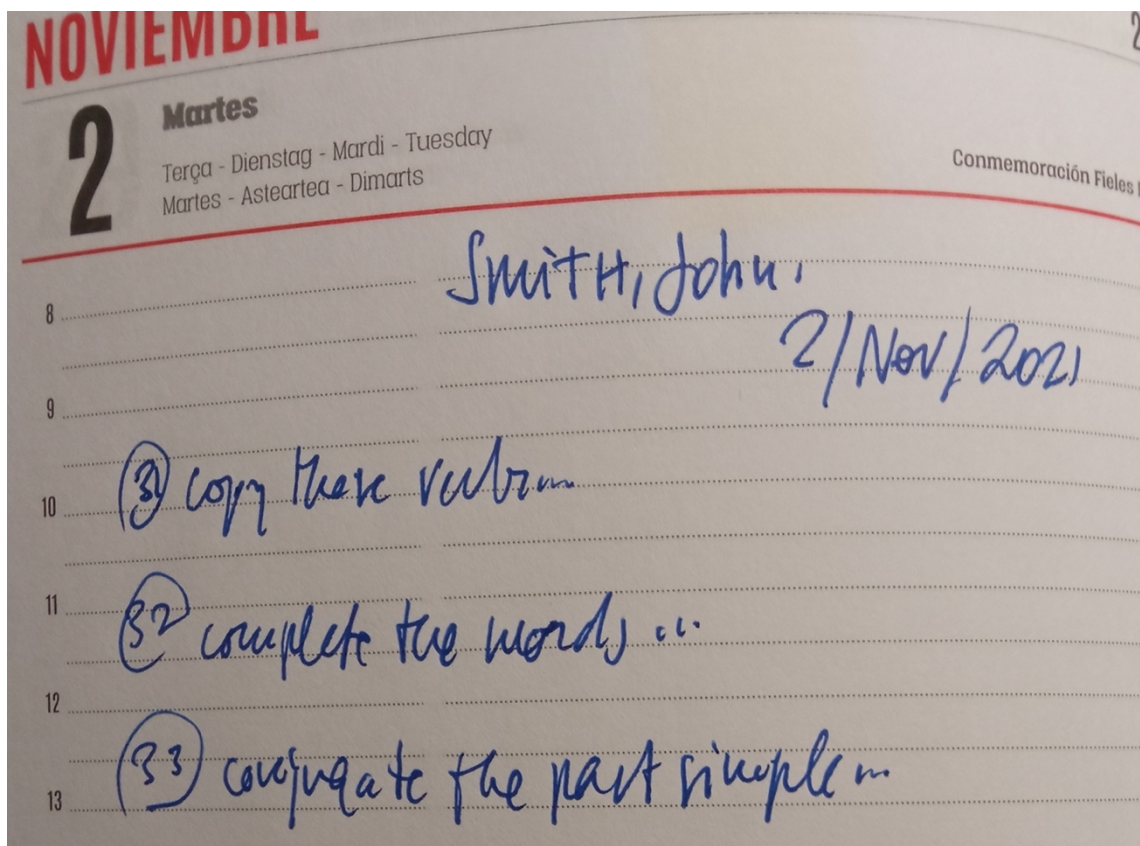 NOVIEMBRE
2 Martes
Terça - Dienstag - Mardi - Tuesday
Martes - Asteartea - Dimarts
Conmemoración Fieles
8
Smith, John.
2/Nov/2021
9
10
31 copy these verbs...
11
32 complete the words...
12
33 conjugate the past simple...
13